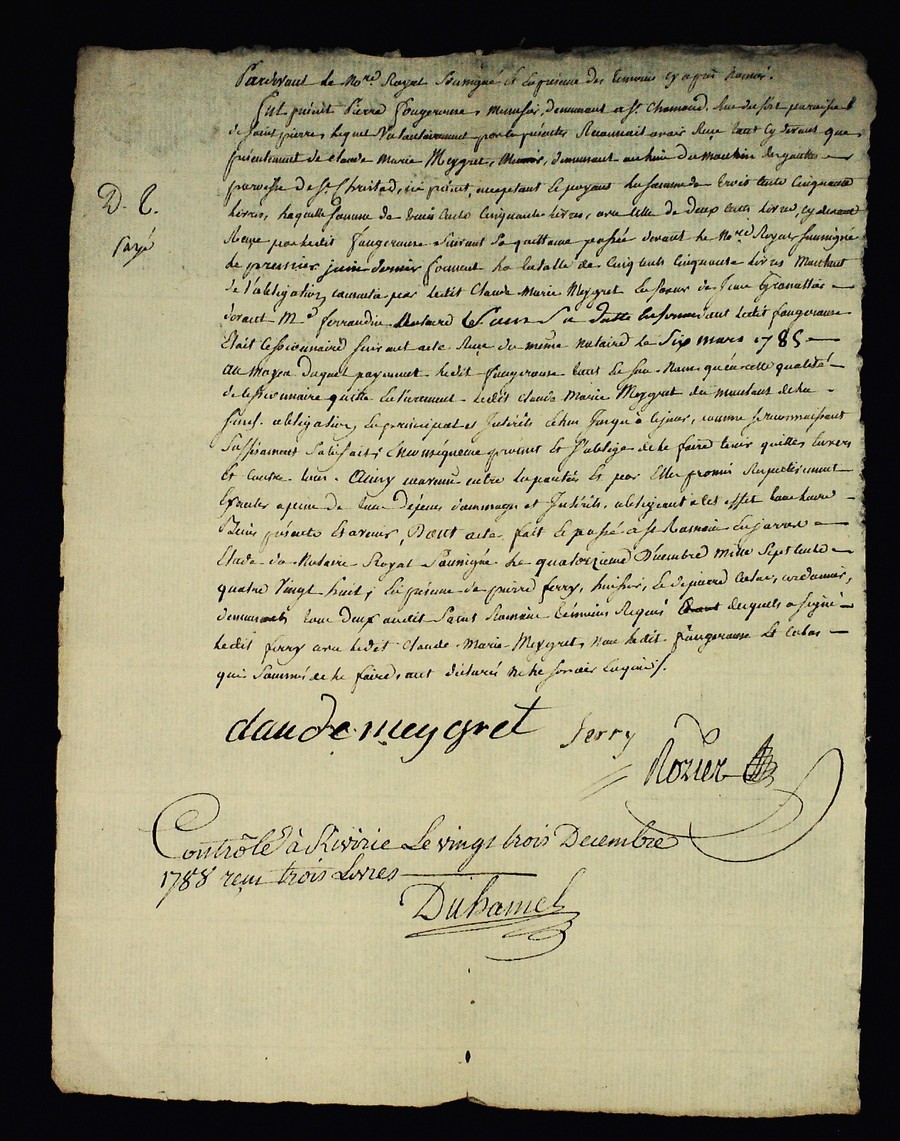 Pardevant le No.re Royal Soussigné et En présence des temoins cy après Nommés.
fut présent Pierre fougerouse, Menusier, demeurant a St. Chamond, Rue du fort paroisse
de saint pierre, lequel Volontairement par le présentes Reconnait avoir Reçu tant cy devant que
présentement de claude Marie Meygret, demeurant au lieu du
paroisse De St. Christot, ici présent, acceptant Le payant La somme de trois Cents Cinquante
livres, laquelle somme de trois Cents Cinquante livres, avec celle de deux Cents livres, cy devant
Reçue par ledit fougerouse Suivant La quittance passée devant le No.re Royal Soussigné
le premier juin dernier forment la totalle de Cinq Cents Cinquante livres Montant
de l'obligation consentie par ledit Claude Marie Meygret En faveur de Jean
devant M.e ferrandin Notaire Le Sous Sa datte En forme dont ledit fougerouse
Etait Cessionnaire suivant acte Reçu du même notaire le Six mars 1785
Au moyen duquel payement ledit fougerouse tant En son Nom qu'en cette qualité
de Cessionnaire quitte Entierement ledit Claude Marie Meygret du montant de la
susd. obligation, En principal et Intérêts Echus Jusqu'à Ce jour, comme se reconnaissant
Suffisament Satisfait; En conséquence promet Et s'oblige de le faire tenir quitte Envers
Et Contre tous. Ainsy convenu entre les parties Et par Elles promis Respectivement
Exécuter a peine de tous dépens dommages et Intérêts, obligeant a Cet effet tous leurs
Biens présents Et avenir, Dont acte, fait Et passé a St. Romain En jarrez
Etude du Notaire Royal Soussigné le quatorzieme Decembre mille Sept Cents
quatre Vingt huit; En présence de pierre ferry, huissier, Et de pierre cordonnier,
demeurants tous deux audit Saint Romain témoins Requis desquels a signé
ledit ferry avec ledit Claude Marie Meygret, non ledit fougerouse Et
qui Sommés de le faire, ont déclarés ne le savoir Enquis.
D. C.
payé
claude meygret ferry
Rozier
Controllé à Riverie Le vingt trois Decembre
1788 reçu trois Livres
Duhamel